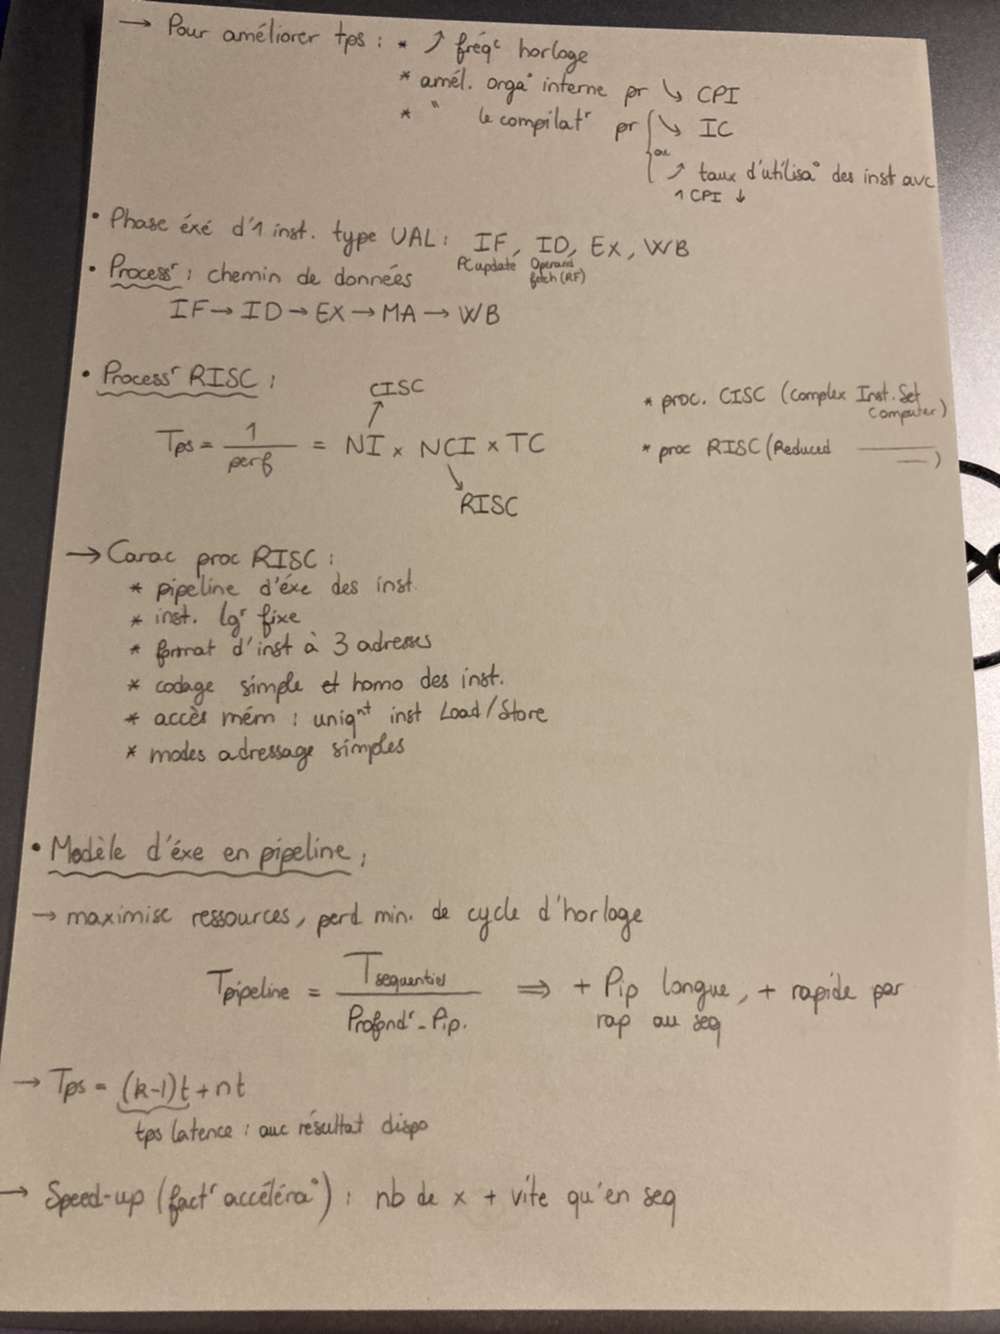 → Pour améliorer tps : * ↗ fréqᶜ horloge
* amél. orga° interne pr ↘ CPI
* " le compilatʳ pr { ↘ IC
ou
↗ taux d'utilisa° des inst avc
1 CPI ↓
• Phase éxé d'1 inst. type UAL : IF, ID, EX, WB
PC update Operand
fetch (RF)
• Processʳ : chemin de données
IF → ID → EX → MA → WB
• Processʳ RISC :
CISC
* proc. CISC (Complex Inst. Set
Computer)
Tps = 1/perf = NI × NCI × TC
* proc RISC (Reduced ——— —)
RISC
→ Carac proc RISC :
* pipeline d'éxe des inst.
* inst. lgʳ fixe
* format d'inst à 3 adresses
* codage simple et homo des inst.
* accès mém : uniqⁿᵗ inst Load/Store
* modes adressage simples
• Modèle d'éxe en pipeline ;
→ maximisc ressources, perd min. de cycle d'horloge
Tpipeline = Tsequentiel / Profondʳ - Pip. ⇒ + Pip longue, + rapide par
rap au seq
→ Tps = (k-1)t + nt
tps latence : auc résultat dispo
→ Speed-up (factʳ accéléra°) : nb de x + vite qu'en seq